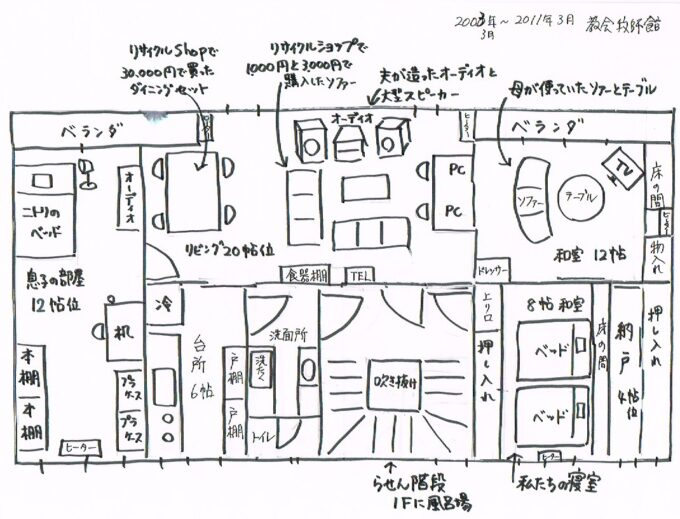 2003年～2011年3月 教会牧師館
3月
リサイクルShopで
30,000円で買った
ダイニングセット
リサイクルショップで
1000円と3,000円で
購入したソファー
夫が造ったオーディオと
大型スピーカー
母が使っていたソファーとテーブル
ベランダ
ヒーター
オーディオ
ヒーター
ベランダ
ニトリの
ベッド
オーディオ
息子の部屋
12帖位
机
本棚
本棚
プラケース
プラケース
ヒーター
リビング20帖位
PC
PC
食器棚
TEL
ソファー
テーブル
TV
床の間
ヒーター
物入れ
和室 12帖
ドレッサー
冷
台所
6帖
戸棚
戸棚
洗面所
洗たく
トイレ
吹き抜け
上り口
押し入れ
8帖和室
ベッド
ベッド
床の間
納戸
4帖位
押し入れ
ヒーター
らせん階段
1Fに風呂場
私たちの寝室